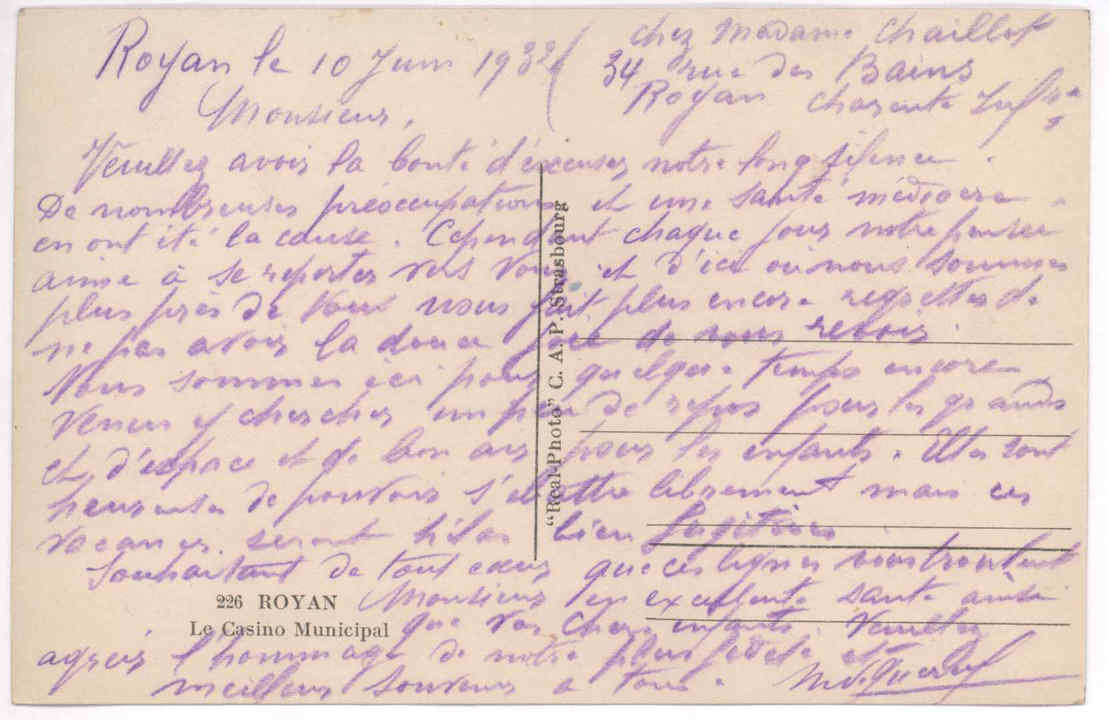 Royan le 10 Juin 1932
chez Madame Chaillot
34 rue des Bains
Royan Charente Infre
Monsieur,
Veuillez avoir la bonté d'excuser notre long silence.
De nombreuses préoccupations et une santé médiocre
en ont été la cause. Cependant chaque jour notre pensée
aime à se reporter vers vous et d'ici où nous sommes
plus près de vous nous fait plus encore regretter de
ne pas avoir la douce joie de vous revoir.
Nous sommes ici pour quelque temps encore
venus y chercher un peu de repos pour les grands
et d'espace et de bon air pour les enfants. Elles sont
heureuses de pouvoir s'ébattre librement mais ces
vacances seront hélas bien fugitives
Souhaitant de tout cœur que ces lignes vous trouvent
Monsieur en excellente santé ainsi
que vos chers enfants. Veuillez
agréer l'hommage de notre plus et
meilleurs souvenirs à tous.
"Real-Photo" C. A. P. Strasbourg
226 ROYAN
Le Casino Municipal